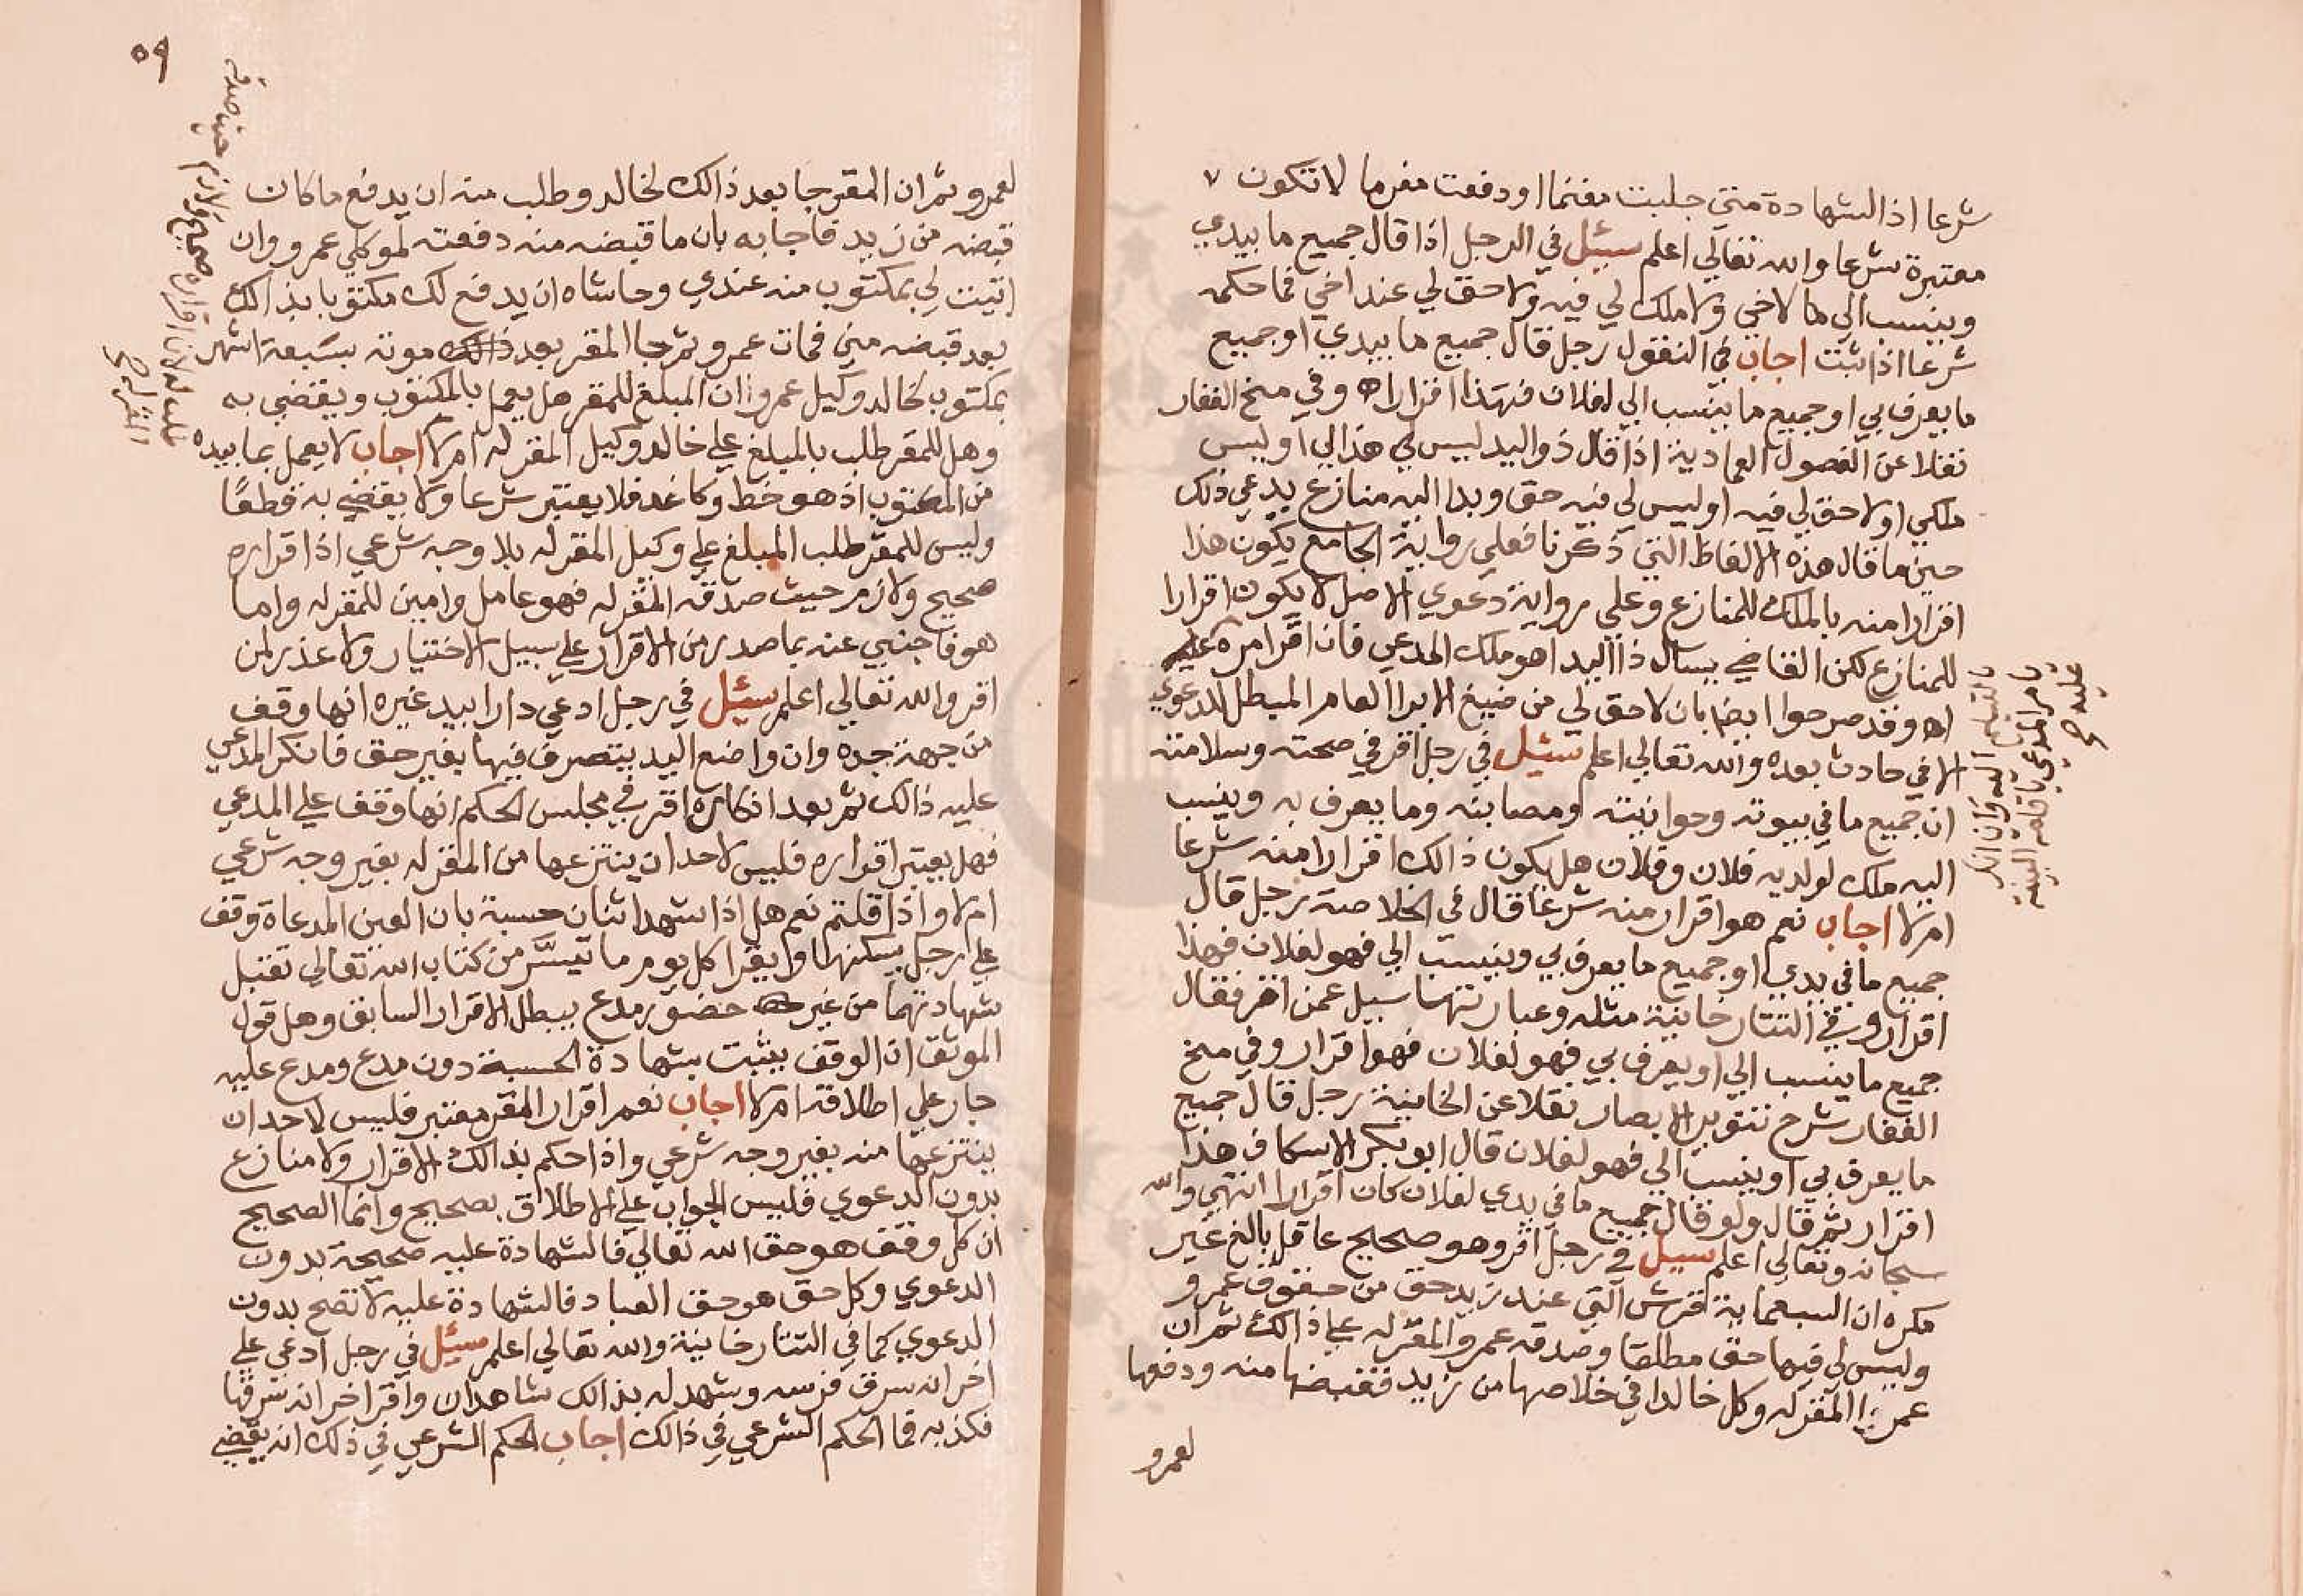 شرعا اذ الشهادة متي جلبت مغنما او دفعت مغرما لا تكون
معتبرة شرعا والله تعالي اعلم سئيل في الرجل اذا قال جميع ما بيدي
وينسب الي ما لاخي ولا ملك لي فيه ولا حق لي عند اخي فما حكمه
شرعا اذا ثبت اجاب في النقول رجل قال جميع ما بيدي او جميع
ما يعرف بي او جميع ما ينسب الي لفلان فهذا اقرار اه وفي منح الغفار
نقلا عن الفصول العمادية اذا قال ذو اليد ليس لي هذا لي او ليس
ملكي او لا حق لي فيه او ليس لي فيه حق وبدا اليه منازع يدعي ذلك
حين ما قال هذه الالفاظ التي ذكرنا فعلي رواية الجامع يكون هذا
اقرارا منه بالملك للمنازع وعلي رواية دعوي الاصل لا يكون اقرارا
للمنازع لكن القاضي يسال ذا اليد اهو ملك المدعي فان اقر امره عليه
اه وقد صرحوا ايضا بان لا حق لي من صيغ الابرا العام المبطل للدعوي
الا في حادث بعده والله تعالي اعلم سئيل في رجل اقر في صحته وسلامته
ان جميع ما في بيوته وحوانيته ومصابنه وما يعرف به وينسب
اليه ملك لولديه فلان وفلان هل يكون ذالك اقرارا منه شرعا
ام لا اجاب نعم هو اقرار منه شرعا قال في الخلاصة رجل قال
جميع ما في يدي او جميع ما يعرف بي وينسب الي فهو لفلان فهذا
اقرار وفي التتارخانية مثله وعبارتها سيل عمن اقر فقال
جميع ما ينسب الي او يعرف بي فهو لفلان فهو اقرار وفي منح
الغفار شرح تنوير الابصار نقلا عن الخانية رجل قال جميع
ما يعرف بي او ينسب الي فهو لفلان قال ابو بكر الاسكاف هذا
اقرار ثم قال ولو قال جميع ما في يدي لفلان كان اقرارا انتهي والله
سبحانه وتعالي اعلم سيل في رجل اقر وهو صحيح عاقل بالغ غير
مكره ان السبعماية اقرش التي عند زيد حق من حقوق عمرو
وليس لي فيها حق مطلقا وصدقه عمرو المقر له علي ذالك ثم ان
عمرا المقر له وكل خالدا في خلاصها من زيد فقبضها منه ودفعها
لعمرو
بالتسليم اليه وان انكر
يامر المدعي باقامة البينة
عليه صح
٥٩
لعمرو ثم ان المقر جا بعد ذالك لخالد وطلب منه ان يدفع ما كان
قبضه من زيد فاجابه بان ما قبضه منه دفعته لموكلي عمرو وان
اتيت لي بمكتوب منه عندي وحاشاه ان يدفع لك مكتوبا بذالك
بعد قبضه مني فمات عمرو ثم جا المقر بعد موته بسبعة اشهر
بمكتوب لخالد وكيل عمرو ان المبلغ للمقر هل يعمل بالمكتوب ويقضي به
وهل للمقر طلب بالمبلغ علي خالد وكيل المقر له ام لا اجاب لا يعمل بما بيده
من المكتوب اذ هو خط وكاغد فلا يعتبر شرعا ولا يقضي به قطعا
وليس للمقر طلب المبلغ علي وكيل المقر له بلا وجه شرعي اذ اقراره
صحيح ولازم حيث صدقه المقر له فهو عامل وامين للمقر له واما
هو فاجنبي عنه بما صدر من الاقرار علي سبيل الاختيار ولا عذر لمن
اقر والله تعالي اعلم سئيل في رجل ادعي دارا بيد غيره انها وقف
من جهة جده وان واضع اليد يتصرف فيها بغير حق فانكر المدعي
عليه ذالك ثم بعد انكاره اقر في مجلس الحكم انها وقف علي المدعي
فهل يعتبر اقراره فليس لاحد ان ينتزعها من المقر له بغير وجه شرعي
ام لا واذا قلتم نعم هل اذا شهد اثنان حسبة بان العين المدعاة وقف
علي رجل يسكنها ويقرا كل يوم ما تيسر من كتاب الله تعالي تقبل
شهادتهما من غير حضور مدع ببطل الاقرار السابق وهل قول
الموثق ان الوقف يثبت بشهادة الحسبة دون مدع ومدع عليه
جار علي اطلاقه ام لا اجاب نعم اقرار المقر معتبر فليس لاحد ان
ينتزعها منه بغير وجه شرعي واذا حكم بذالك الاقرار ولا منازع
بدون الدعوي فليس الجواب علي الاطلاق بصحيح وانما الصحيح
ان كل وقف هو حق الله تعالي فالشهادة عليه صحيحة بدون
الدعوي وكل حق هو حق العباد فالشهادة عليه لا تصح بدون
الدعوي كما في التتارخانية والله تعالي اعلم سئيل في رجل ادعي علي
اخر انه سرق فرسه وشهد له بذالك شاهدان واقر اخر انه سرقها
فكذبه فما الحكم الشرعي في ذالك اجاب الحكم الشرعي في ذلك انه يقضي
اقراره صحيح ولازم حيث صدقه
المقر له صح